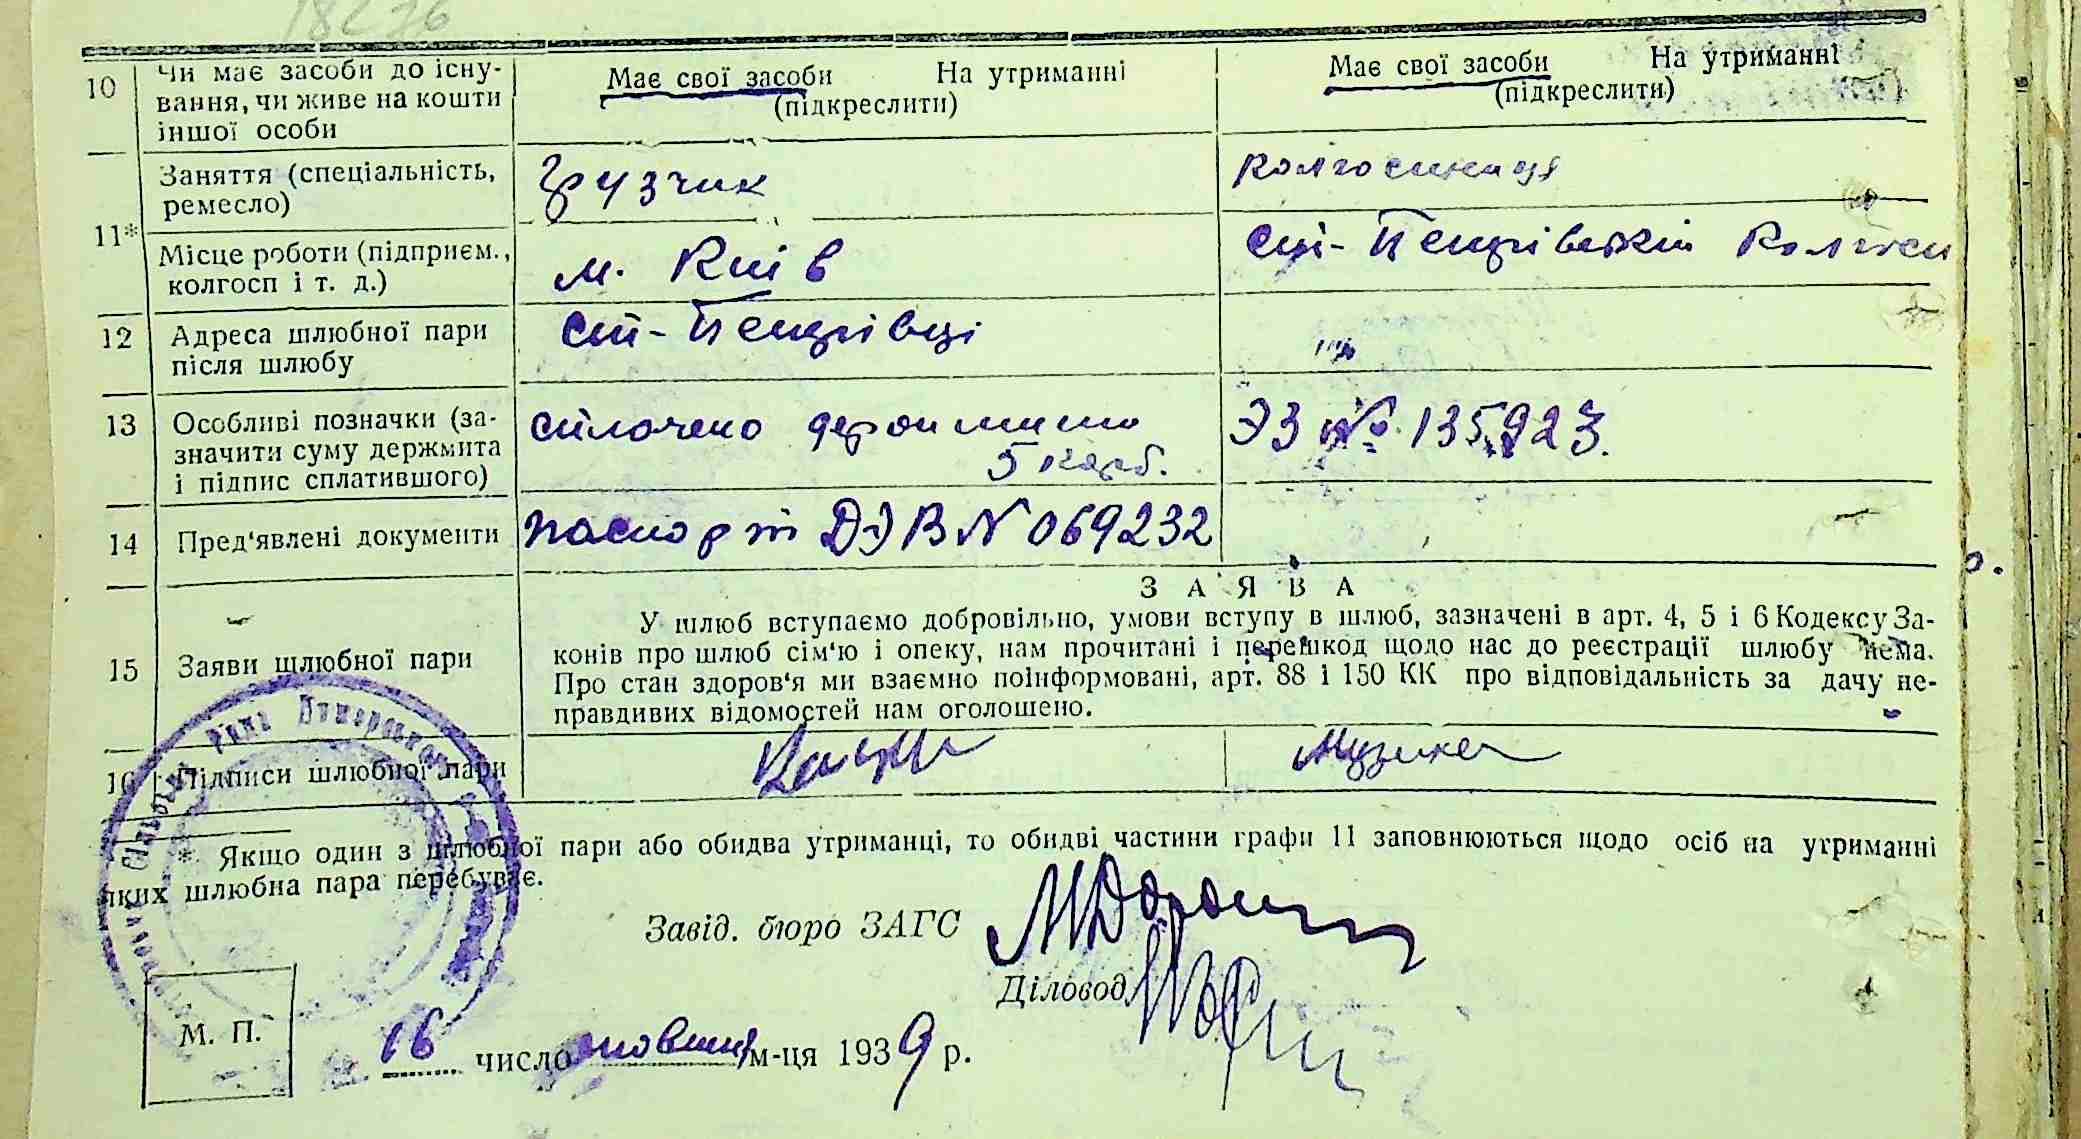 18276
10 Чи має засоби до існу-
вання, чи живе на кошти
іншої особи
Має свої засоби На утриманні
(підкреслити)
Має свої засоби На утриманні
(підкреслити)
11* Заняття (спеціальність,
ремесло)
Грузчик
колгоспниця
Місце роботи (підприєм.,
колгосп і т. д.)
м. Київ
Ст-Петрівський Колгосп
12 Адреса шлюбної пари
після шлюбу
Ст-Петрівці
13 Особливі позначки (за-
значити суму держмита
і підпис сплатившого)
сплочено держмито
5 карб.
ЭЗ № 135923.
14 Пред'явлені документи
паспорт № 069232
З А Я В А
15 Заяви шлюбної пари
У шлюб вступаємо добровільно, умови вступу в шлюб, зазначені в арт. 4, 5 і 6 Кодексу За-
конів про шлюб сім'ю і опеку, нам прочитані і перешкод щодо нас до реєстрації шлюбу нема.
Про стан здоров'я ми взаємно поінформовані, арт. 88 і 150 КК про відповідальність за дачу не-
правдивих відомостей нам оголошено.
16 Підписи шлюбної пари
Музика
* Якщо один з шлюбної пари або обидва утриманці, то обидві частини графи 11 заповнюються щодо осіб на утриманні
яких шлюбна пара перебуває.
Завід. бюро ЗАГС
Діловод
М. П.
16 число жовтня м-ця 1939 р.